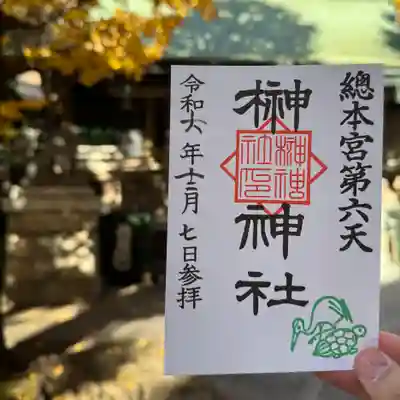 總本宮第六天
榊神社
榊神社印
令和六年十二月七日参拝